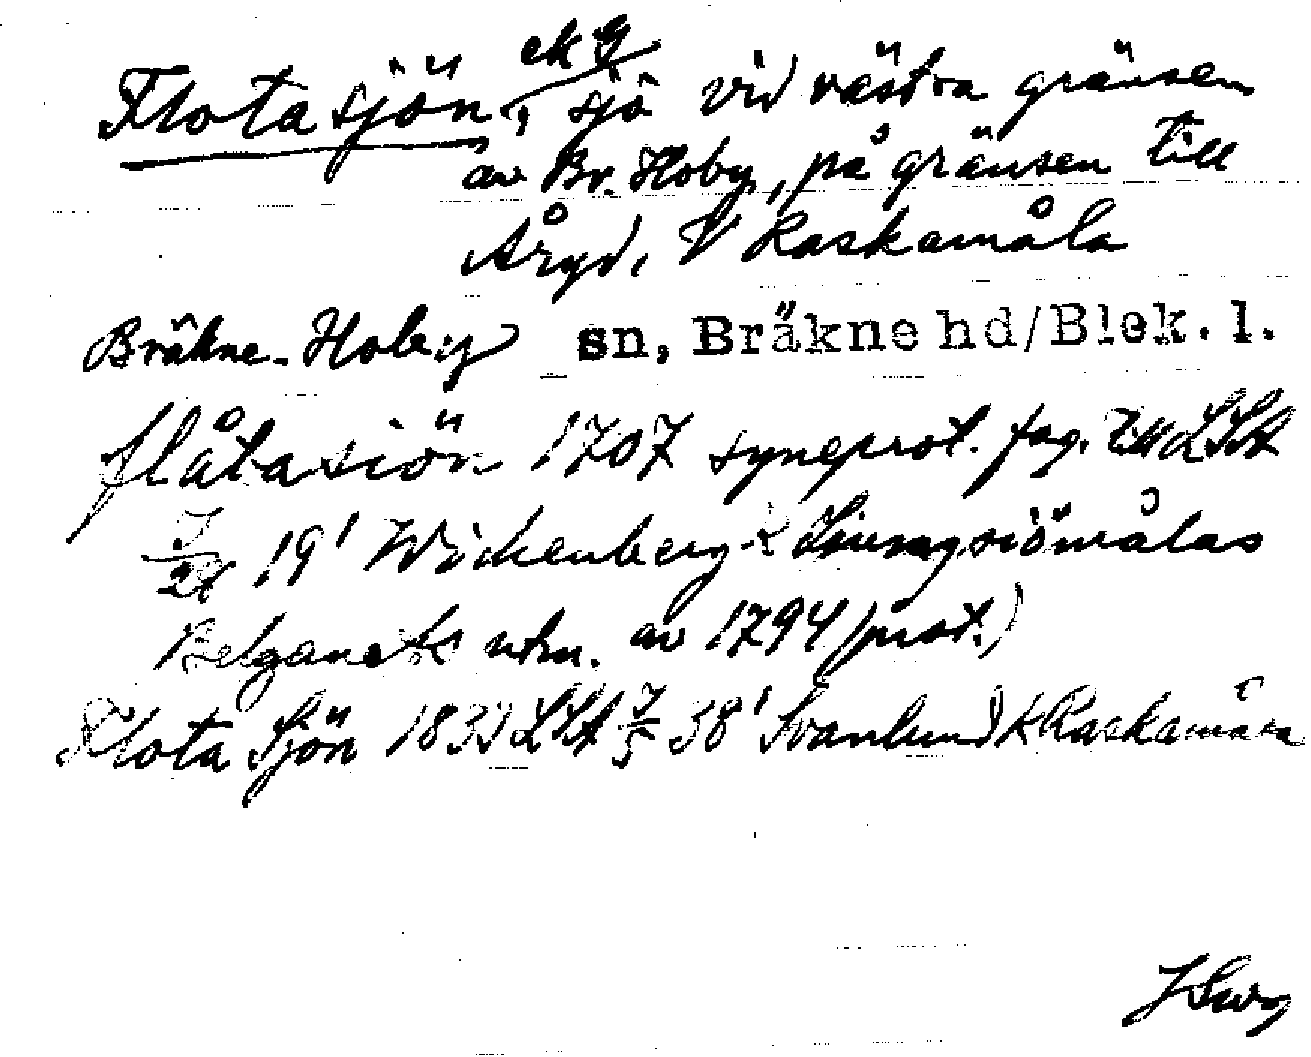 Flotasjön, ek 9 sjö vid västra gränsen
av Br. Hoby, på gränsen till
Åryd, V Raskamåla
Bräkne-Hoby sn, Bräkne hd/Blek. l.
flåtasiön 1707 syneprot. fog. till LSA
19' Wickenberg
Belganets utm. av 1794 (prot.)
Flota Sjön 183 LSA 7/5 38' Svanlund k Raskamåla